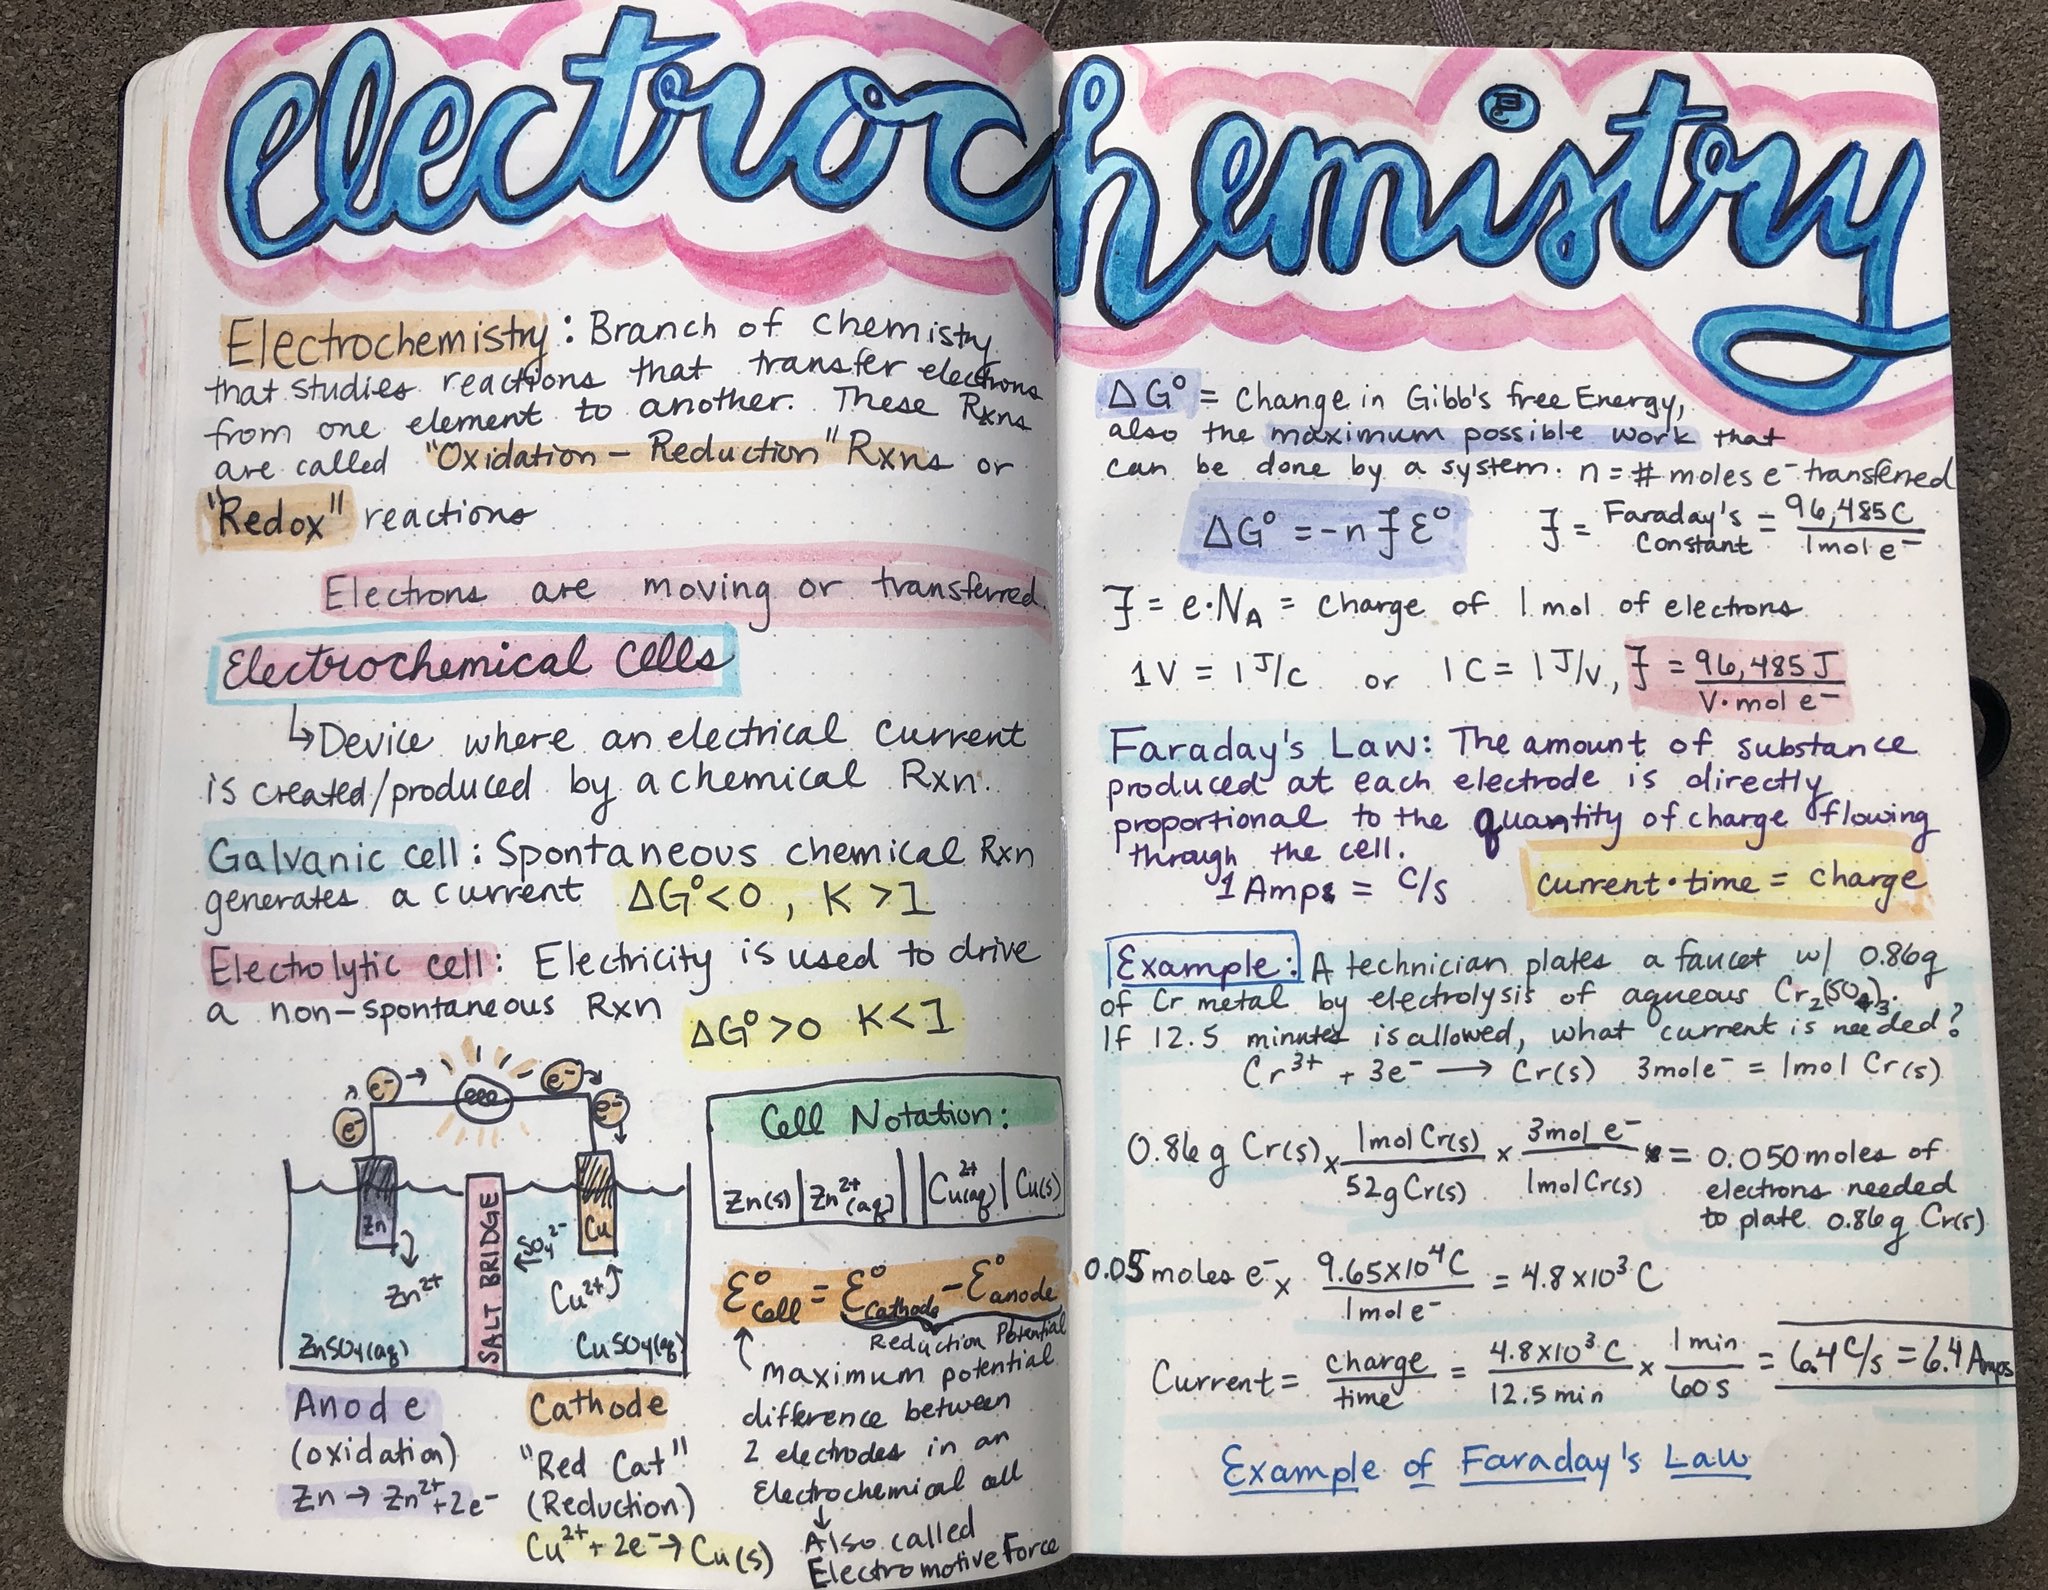 electrochemistry
Electrochemistry: Branch of chemistry
that studies reactions that transfer electrons
from one element to another. These Rxns
are called "Oxidation - Reduction" Rxns or
"Redox" reactions
Electrons are moving or transferred.
Electrochemical Cells
↳ Device where an electrical current
is created/produced by a chemical Rxn.
Galvanic cell: Spontaneous chemical Rxn
generates a current ΔG°<0, K>1
Electrolytic cell: Electricity is used to drive
a non-spontaneous Rxn ΔG°>0 K<1
e⁻ e⁻ → e⁻ e⁻
Zn
Cu
SALT BRIDGE
SO₄²⁻
Zn²⁺
Cu²⁺
ZnSO₄(aq)
CuSO₄(aq)
Anode
(oxidation)
Zn → Zn²⁺ + 2e⁻
Cathode
"Red Cat"
(Reduction)
Cu²⁺ + 2e⁻ → Cu(s)
Cell Notation:
Zn(s) | Zn²⁺(aq) || Cu²⁺(aq) | Cu(s)
Ɛ°cell = Ɛ°cathode - Ɛ°anode
Reduction Potential
maximum potential
difference between
2 electrodes in an
Electrochemical cell
↓
Also called
Electromotive Force
ΔG° = change in Gibb's free Energy,
also the maximum possible work that
can be done by a system. n = # moles e⁻ transferred
ΔG° = -nƑƐ° Ƒ = Faraday's Constant = 96,485C / 1mol e⁻
Ƒ = e·N_A = charge of 1 mol of electrons
1V = 1 J/C or 1C = 1 J/V, Ƒ = 96,485 J / V·mol e⁻
Faraday's Law: The amount of substance
produced at each electrode is directly
proportional to the quantity of charge flowing
through the cell.
1 Amps = C/s current·time = charge
Example: A technician plates a faucet w/ 0.86g
of Cr metal by electrolysis of aqueous Cr₂(SO₄)₃.
If 12.5 minutes is allowed, what current is needed?
Cr³⁺ + 3e⁻ → Cr(s) 3mole⁻ = 1mol Cr(s)
0.86 g Cr(s) × 1mol Cr(s) / 52g Cr(s) × 3mol e⁻ / 1mol Cr(s) = 0.050 moles of
electrons needed
to plate 0.86g Cr(s)
0.05 moles e⁻ × 9.65×10⁴C / 1mole⁻ = 4.8×10³ C
Current = charge / time = 4.8×10³ C / 12.5 min × 1 min / 60 s = 6.4 C/s = 6.4 Amps
Example of Faraday's Law